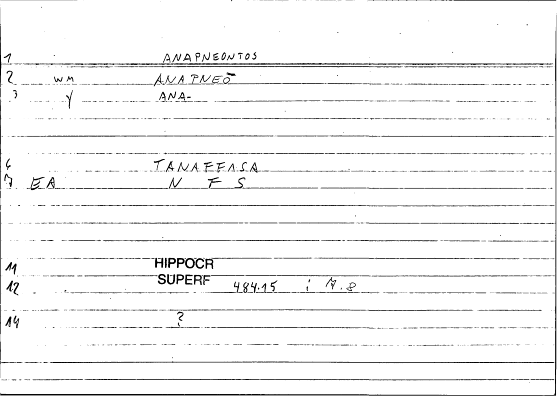 1 ANAPNEONTOS
2 WM ANAPNEŌ
3 Y ANA-
6 TANAFFASA
7 EA N F S
11 HIPPOCR
12 SUPERF 484.15 ; 17.8
14 ?